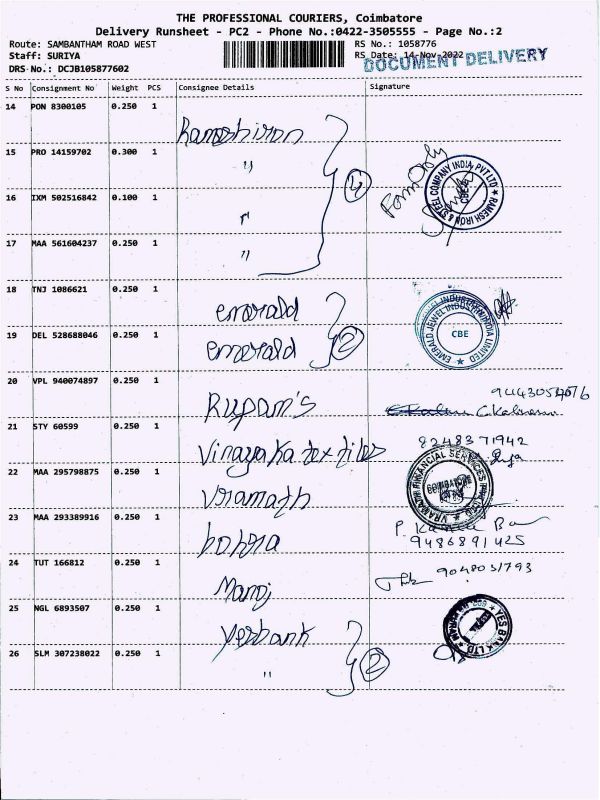 THE PROFESSIONAL COURIERS, Coimbatore
Delivery Runsheet - PC2 - Phone No.:0422-3505555 - Page No.:2
Route: SAMBANTHAM ROAD WEST
RS No.: 1058776
Staff: SURIYA
RS Date: 14-Nov-2022
DOCUMENT DELIVERY
DRS No.: DCJB105877602
S No Consignment No Weight PCS Consignee Details Signature
14 PON 8300105 0.250 1
Ramesh iron
15 PRO 14159702 0.300 1 "
16 IXM 502516842 0.100 1 "
17 MAA 561604237 0.250 1 "
4
RAMESH IRON & STEEL COMPANY INDIA PVT LTD
CBE
18 TNJ 1086621 0.250 1
emerald
19 DEL 528688046 0.250 1
emerald
2
EMERALD JEWEL INDUSTRY INDIA LIMITED
CBE
20 VPL 940074897 0.250 1
Rupam's
21 STY 60599 0.250 1
Vinayaka textiles
8248371942
22 MAA 295798875 0.250 1
Vramath
VRAMATH FINANCIAL SERVICES
COIMBATORE
23 MAA 293389916 0.250 1
bohra
9486891425
24 TUT 166812 0.250 1
Manoj
9048051793
25 NGL 6893507 0.250 1
yesbank
YES BANK LTD
26 SLM 307238022 0.250 1
"
2